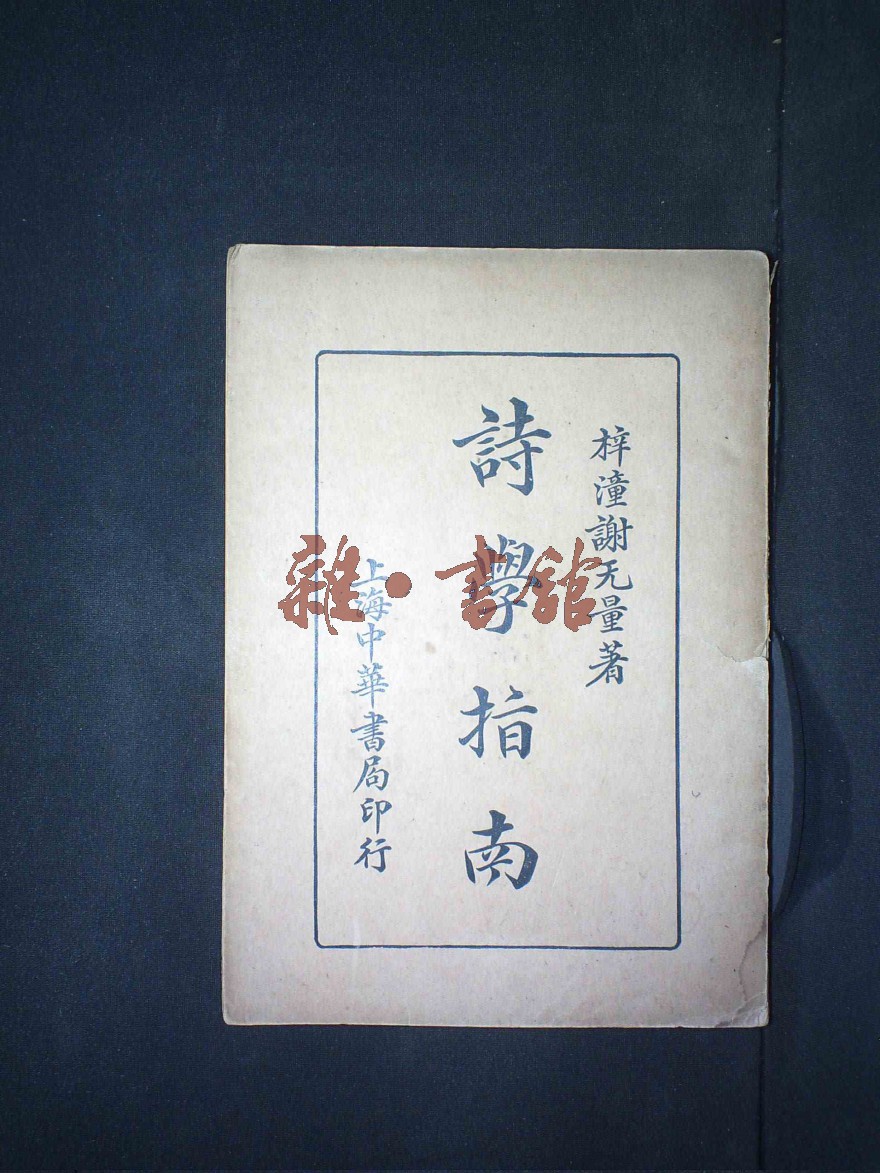 梓潼謝无量著
詩學指南
上海中華書局印行
雜·書舘